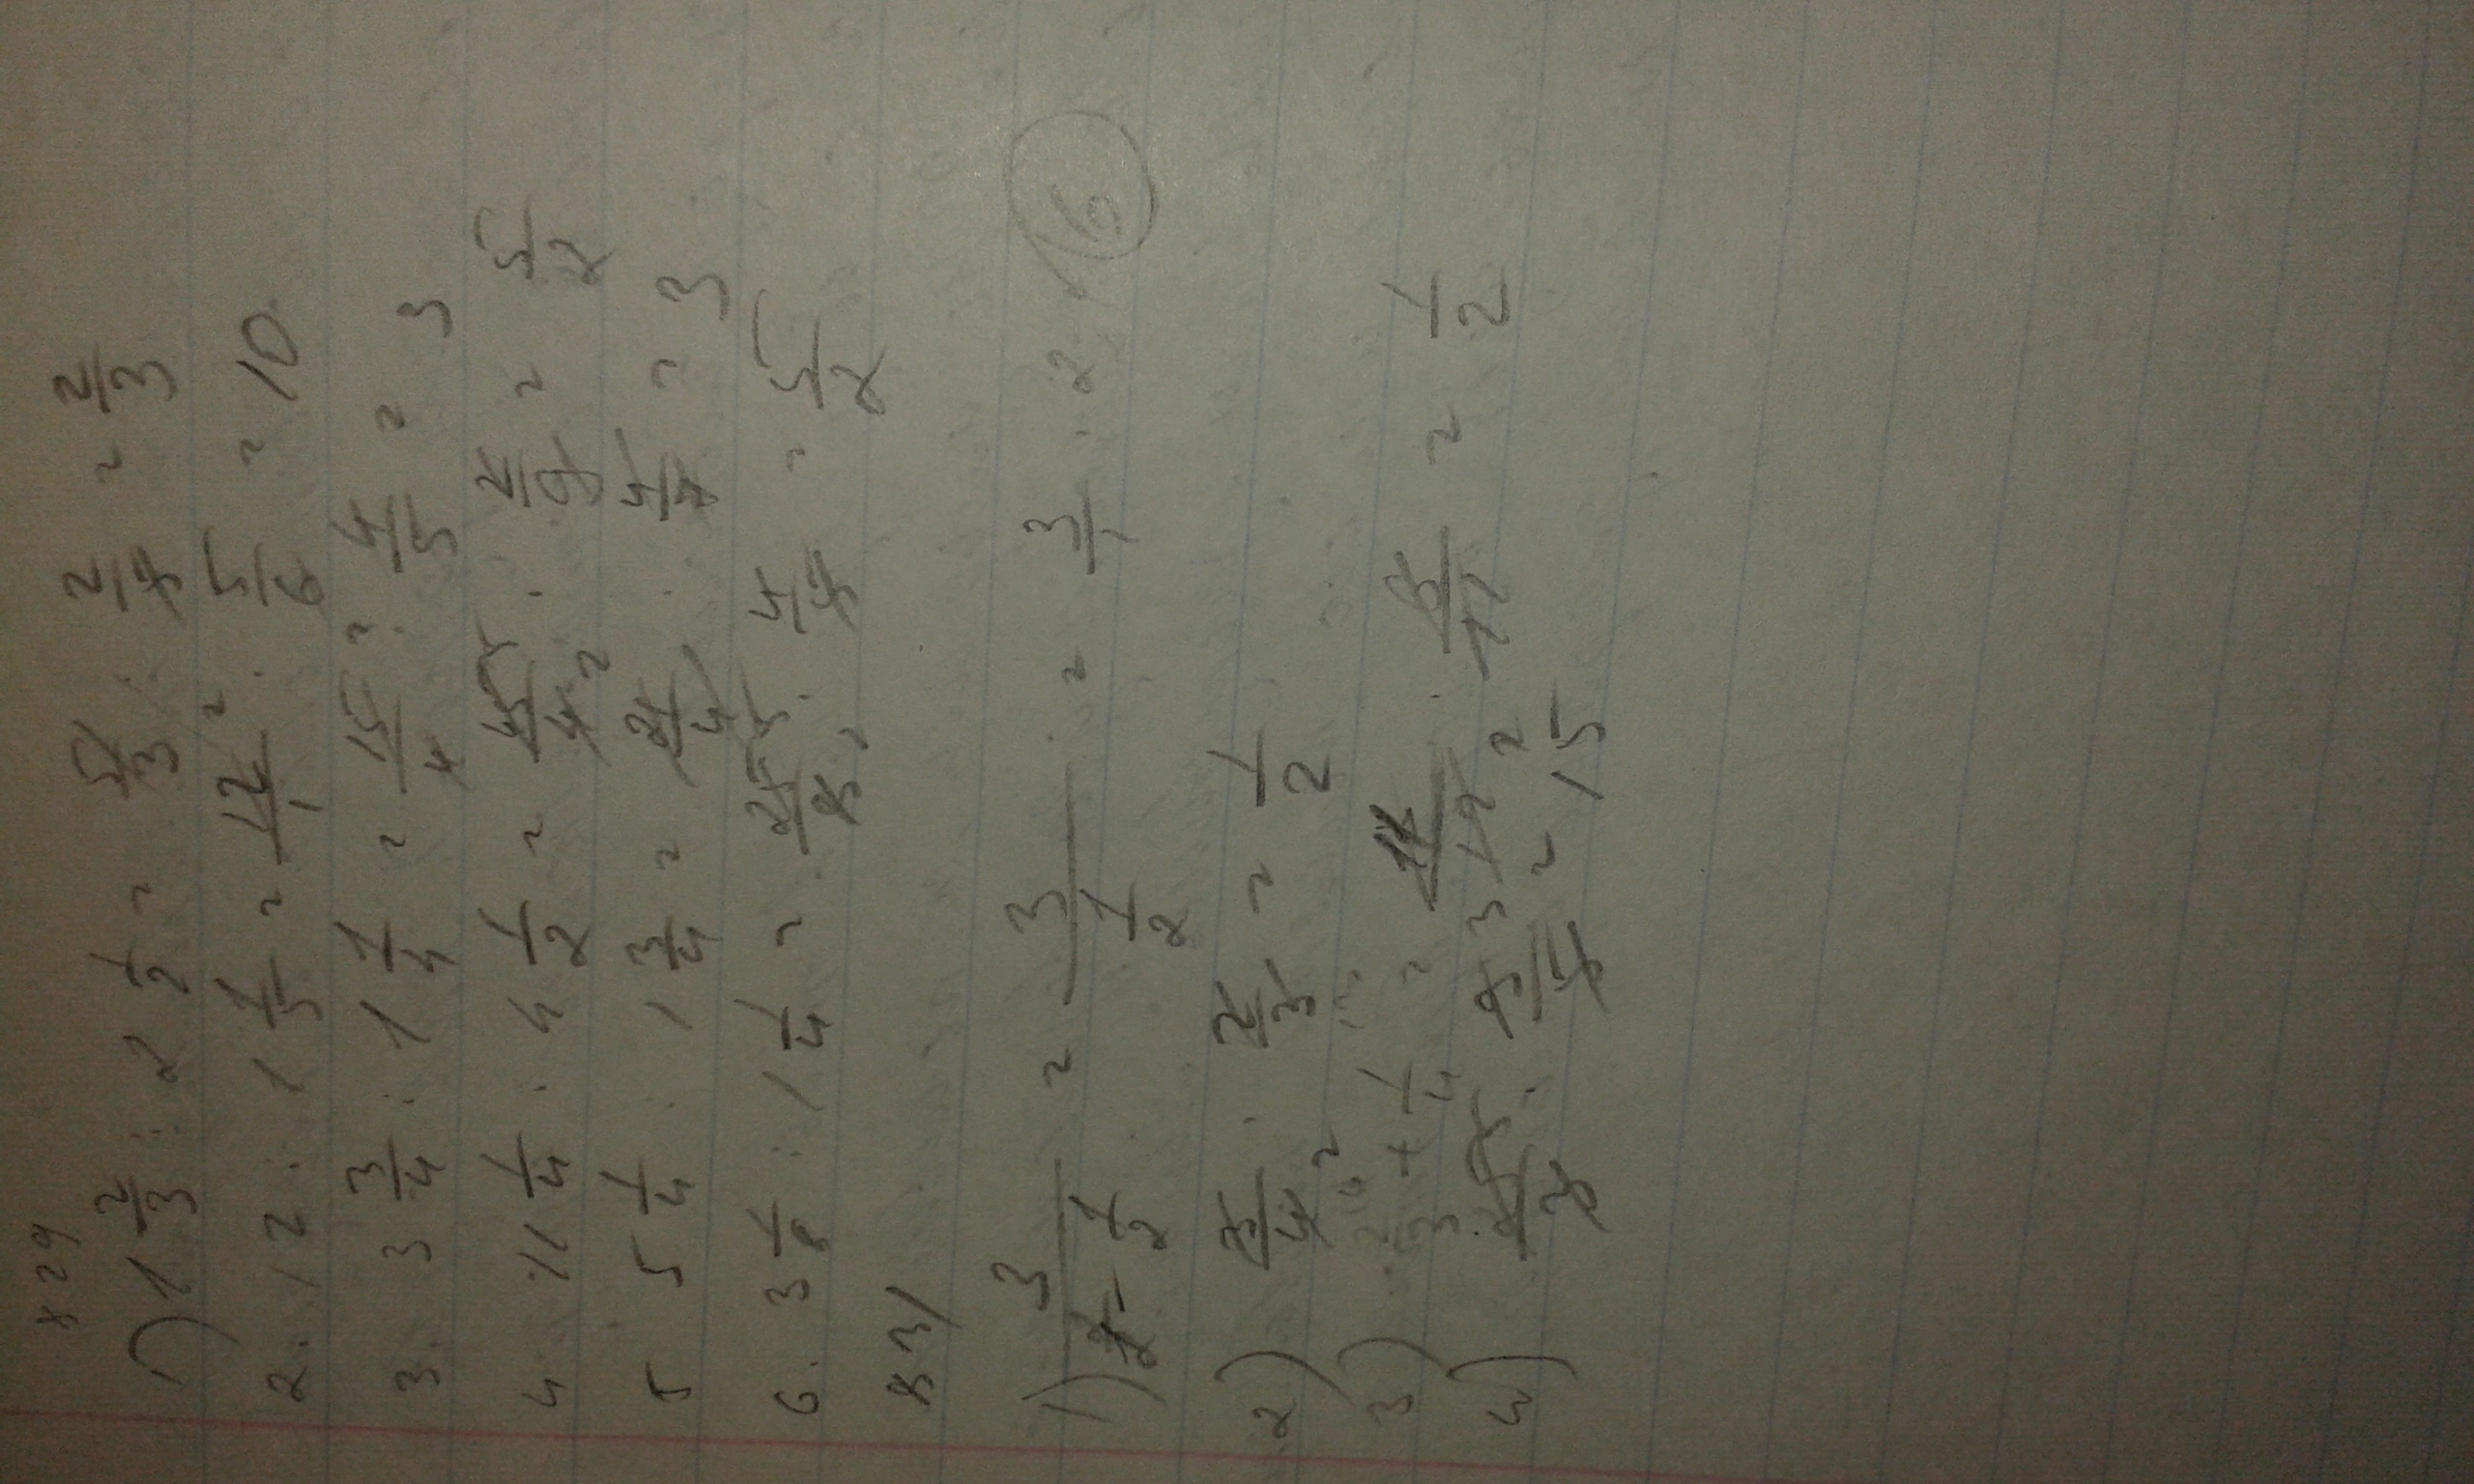 829
1) 1 2/3 : 2 1/2 = 5/3 · 2/5 = 2/3
2. 12 : 1 1/5 = 12/1 · 5/6 = 10
3. 3 3/4 : 1 1/4 = 15/4 · 4/5 = 3
4 11 1/4 : 4 1/2 = 45/4 · 2/9 = 5/2
5 5 1/4 : 1 3/4 = 21/4 · 4/7 = 3
6. 3 1/8 : 1 1/4 = 25/8 · 4/5 = 5/2
831
1) 3 / 1/2 = 3 / 1/2 = 3/1 · 2 = 6
2) 3/4 · 2/3 = 1/2
3) 2/3 + 1/4 = 11/12 · 6/11 = 1/2
4) 25/3 · 9/5 = 15